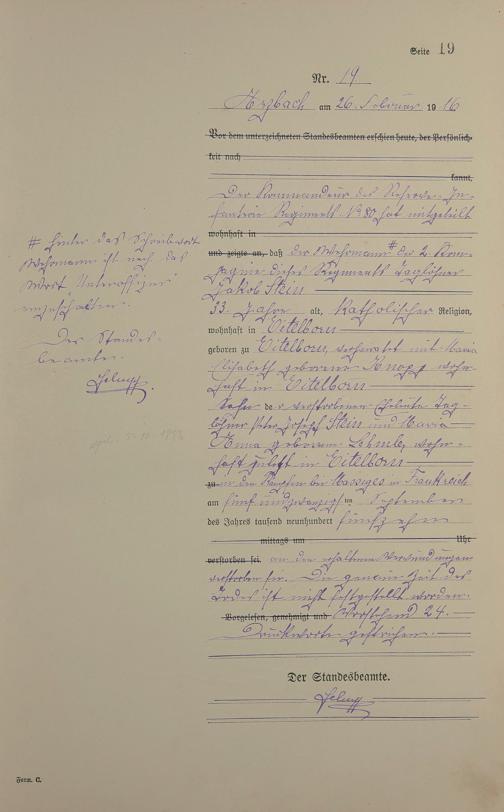 Seite 19
Nr. 19
Arzbach am 26. Februar 1916
Vor dem unterzeichneten Standesbeamten erschien heute, der Persönlich-
keit nach
kannt,
Der Kommandeur des Reserve-In-
fanterie Regiments No 80 hat mitgeteilt
wohnhaft in
und zeigte an, daß der Wehrmann # der 2. Kom-
pagnie dieses Regiments Taglöhner
Jakob Stein
33 Jahre alt, katholischer Religion,
wohnhaft in Eitelborn
geboren zu Eitelborn, verheiratet mit Maria
Elisabeth geborene Knopp wohn-
haft in Eitelborn
Sohn der verstorbenen Eheleute Tag-
löhner Peter Joseph Stein und Maria
Anna geborene wohn-
haft zuletzt in Eitelborn
zu in den Kämpfen bei Massiges in Frankreich
am fünfundzwanzigsten September
des Jahres tausend neunhundert fünfzehn
mittags um Uhr
verstorben sei. an den erhaltenen Verwundungen
verstorben sei. Die genaue Zeit des
Todes ist nicht festgestellt worden.
Vorgelesen, genehmigt und Vorstehend 24
Druckworte gestrichen.
Der Standesbeamte.
# Hinter das Schreibwort
Wehrmann ist noch das
Wort "Unteroffizier"
einzuschalten.
Der Standes-
beamte.
Form. C.